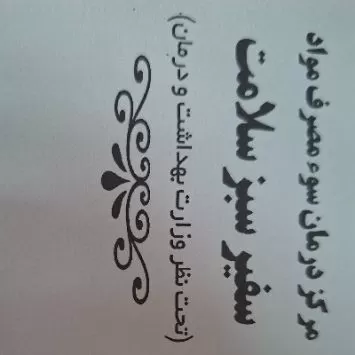 مرکز درمان سوء مصرف مواد
سفیر سبز سلامت
(تحت نظر وزارت بهداشت و درمان)